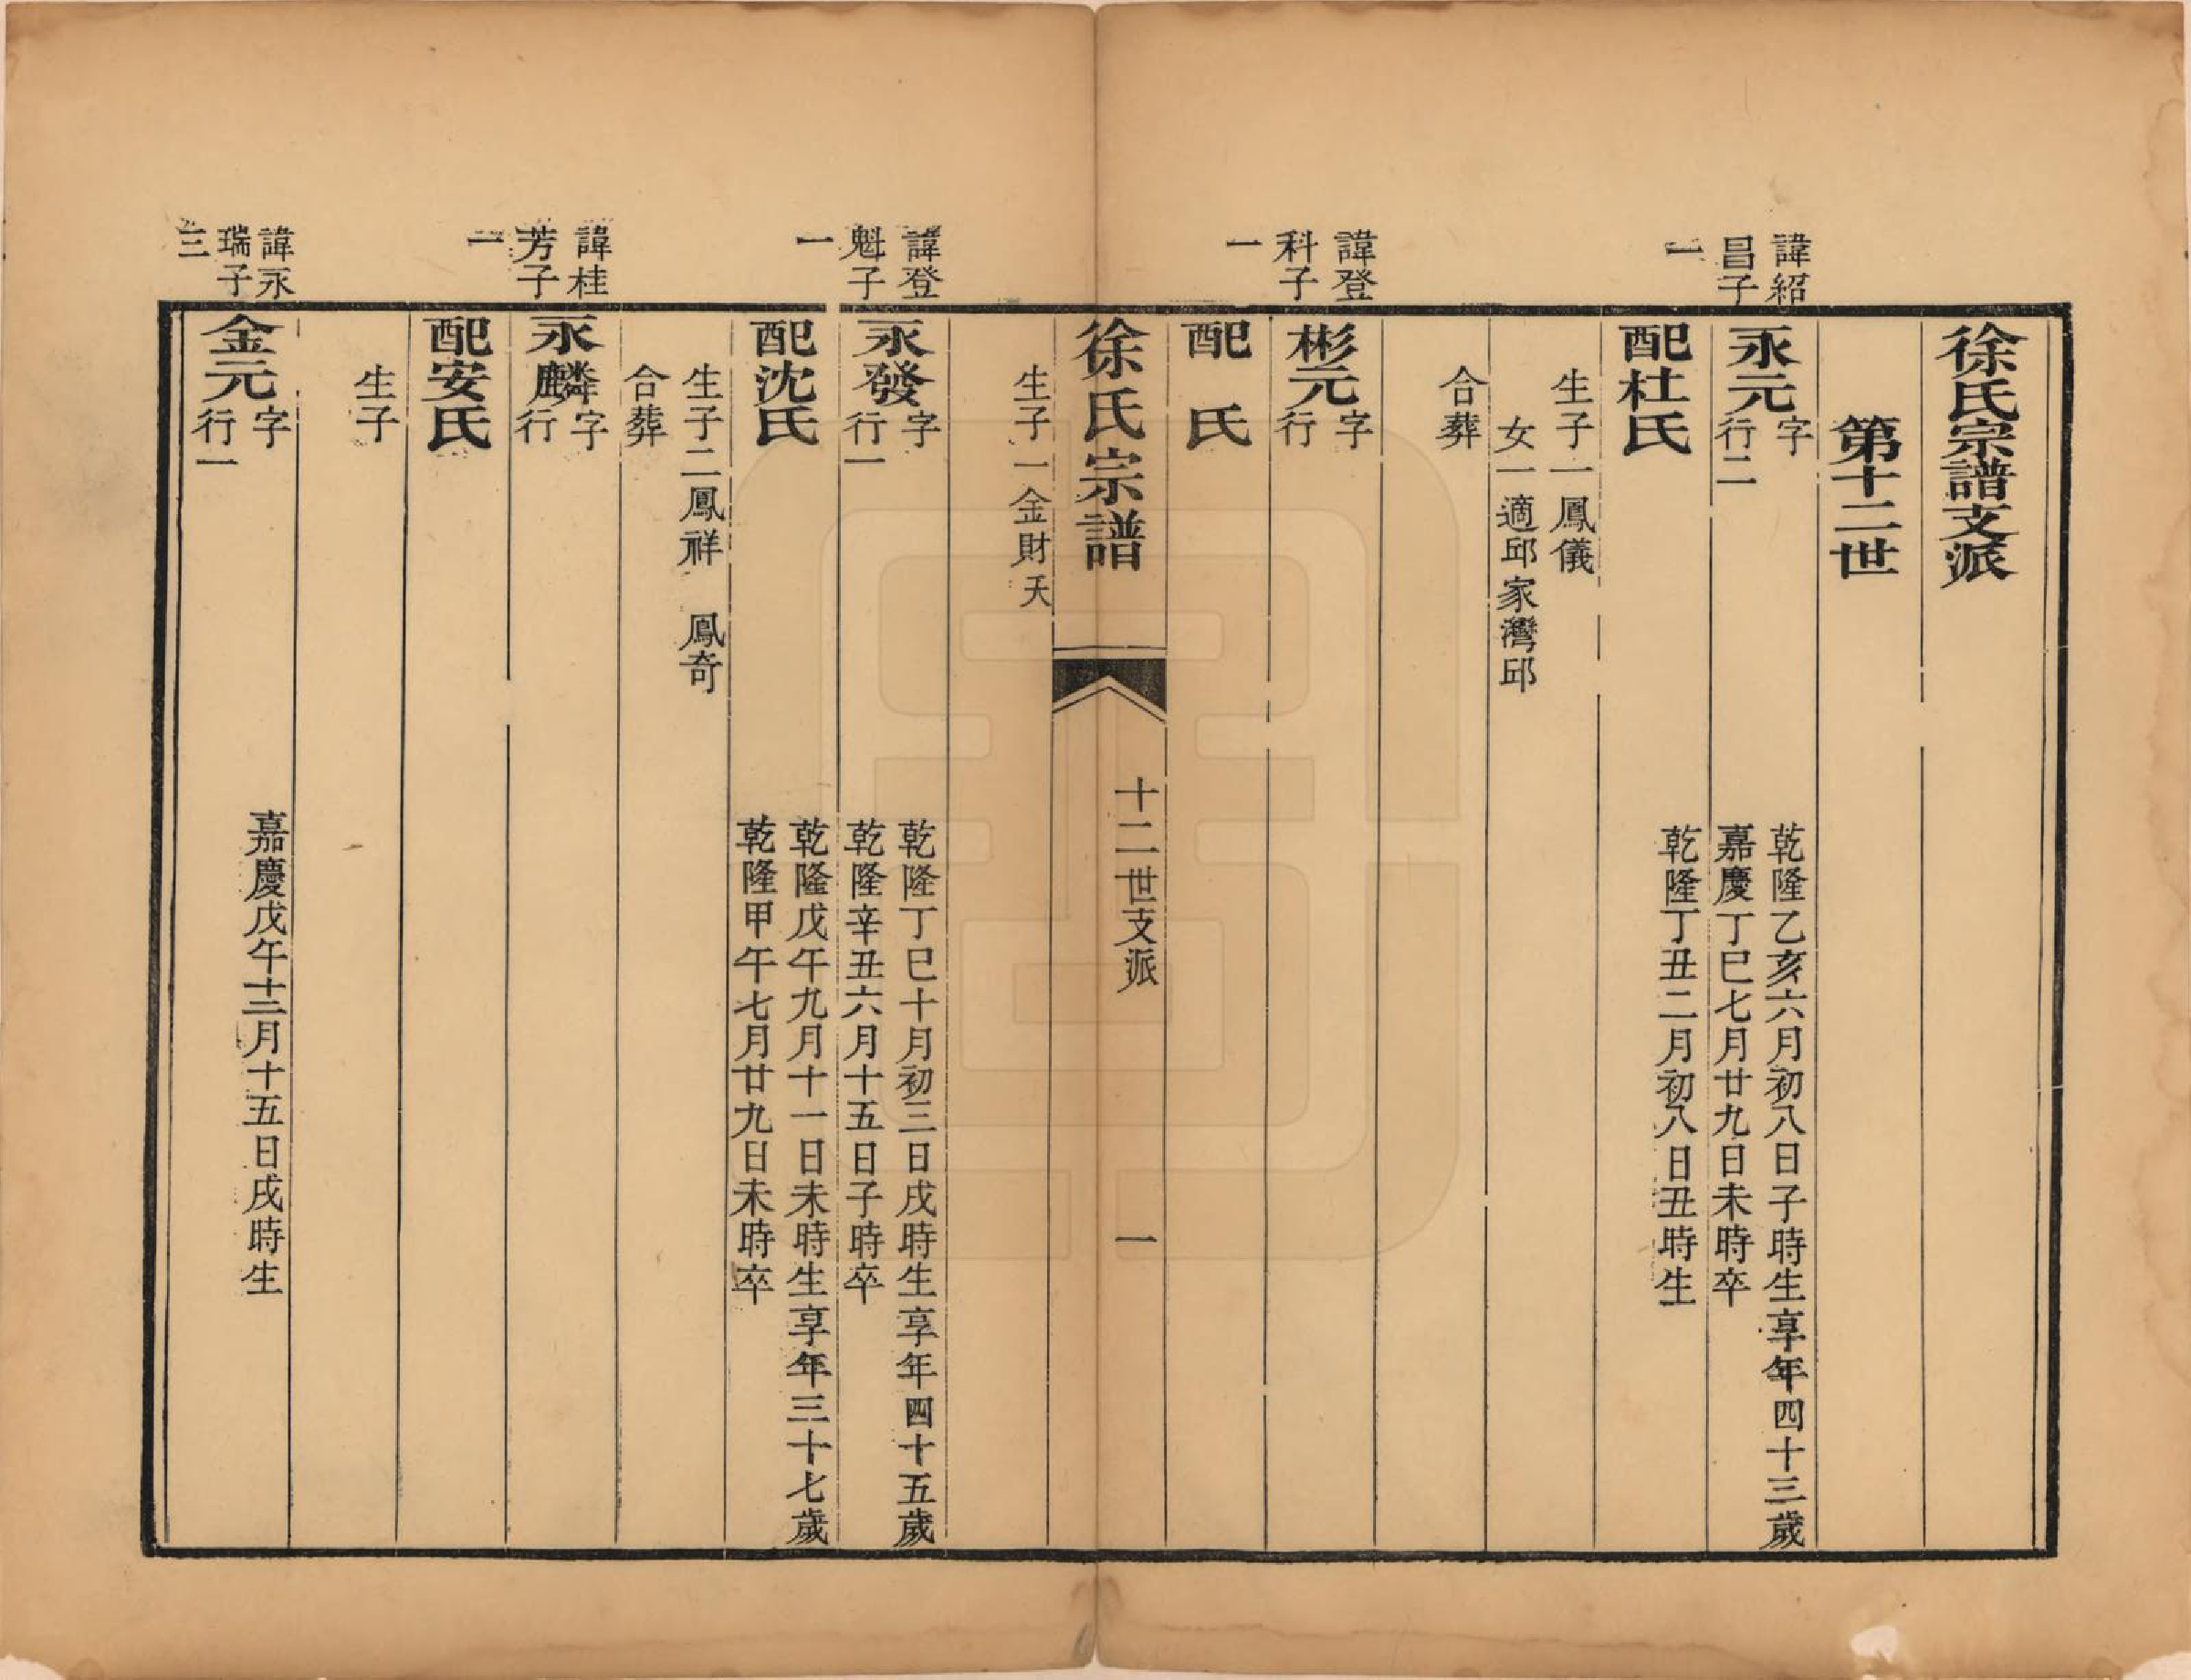 徐氏宗譜支派
第十二世
諱紹
昌子
一
永元字
行二
乾隆乙亥六月初八日子時生享年四十三歲
嘉慶丁巳七月廿九日未時卒
配杜氏
乾隆丁丑二月初八日丑時生
生子一鳳儀
女一適邱家灣邱
合葬
諱登
科子
一
彬元字
行
配 氏
徐氏宗譜
十二世支派
一
生子一金財天
諱登
魁子
一
永發字
行一
乾隆丁巳十月初三日戌時生享年四十五歲
乾隆辛丑六月十五日子時卒
配沈氏
乾隆戊午九月十一日未時生享年三十七歲
乾隆甲午七月廿九日未時卒
生子二鳳祥 鳳奇
合葬
諱桂
芳子
一
永麟字
行
配安氏
生子
諱永
瑞子
三
金元字
行一
嘉慶戊午十二月十五日戌時生